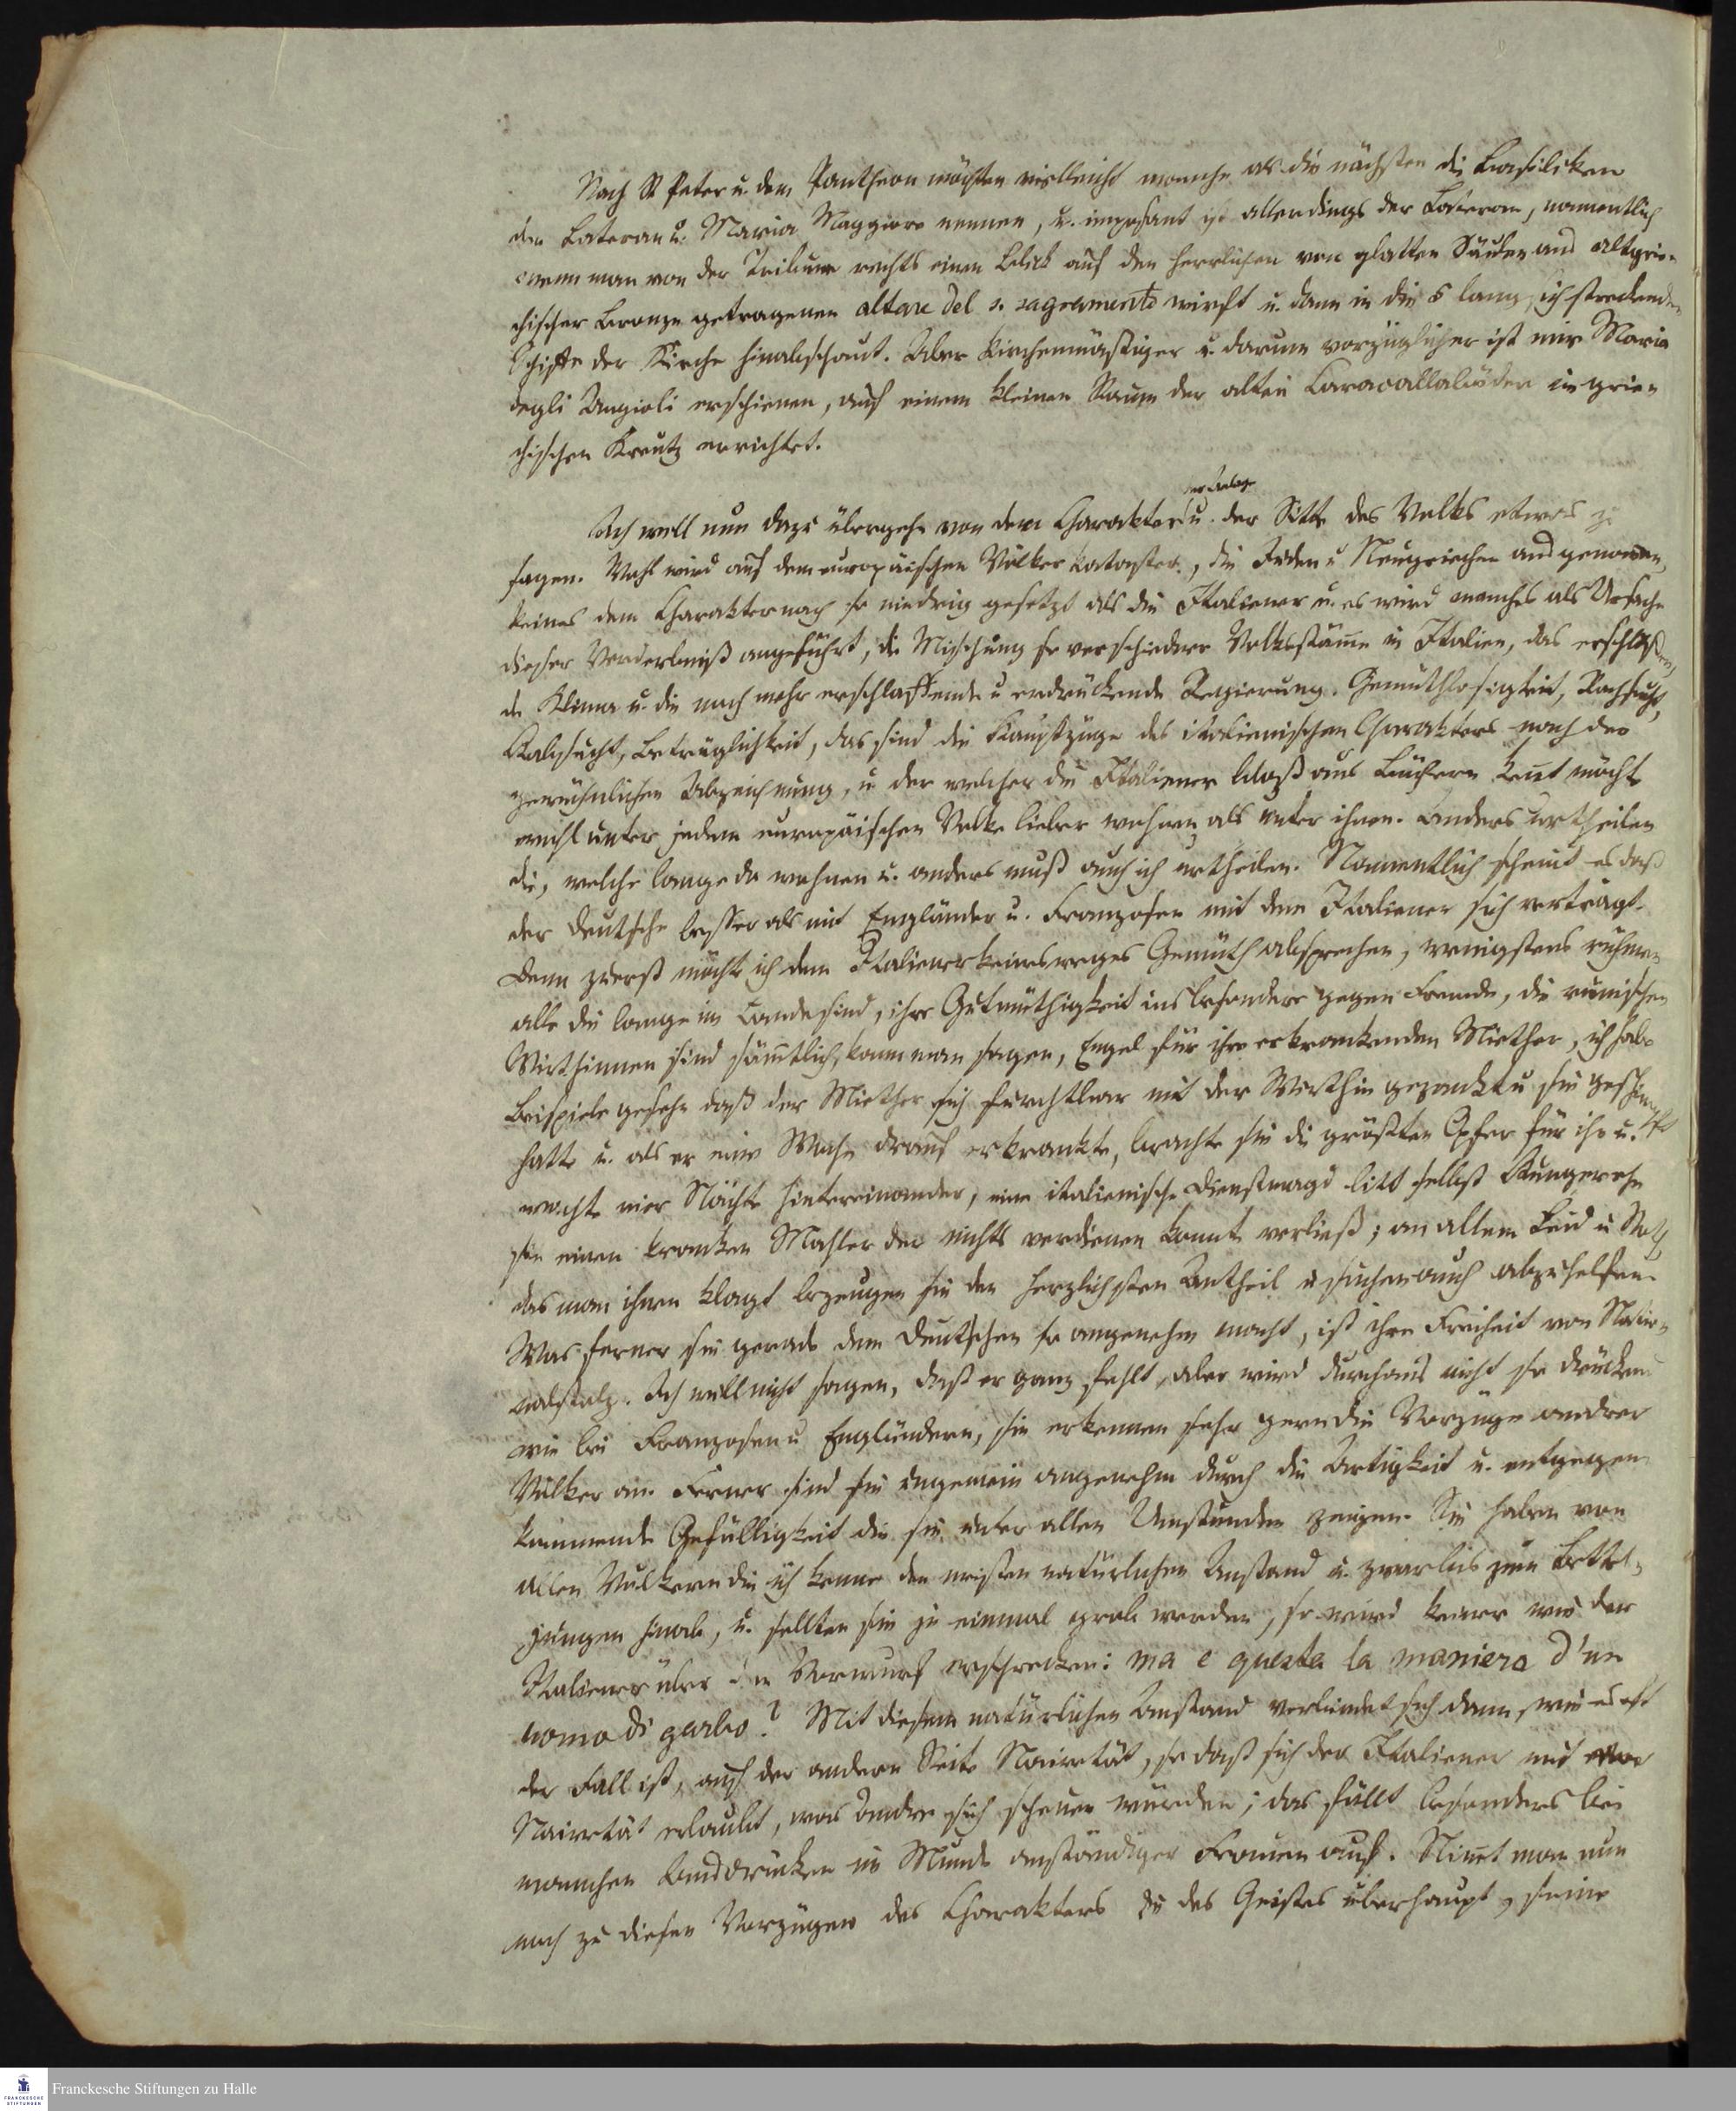 Nach St Peter u. dem Pantheon möchten vielleicht manche als die nächsten die Basiliken
den Lateran u. Maria Maggiore nennen, u. imposant ist allerdings der Lateran, namentlich
wenn man von der Tribune rechts einen Blick auf den herrlichen von glatten Säulen aus altgrie-
chischer Bronze getragenen altare del s. sagramento wirft u. dann in die 5 lang sich streckenden
Schiffe der Kirche hinabschaut. Aber kirchenmäßiger u. darum vorzüglicher ist mir Maria
degli Angioli erschienen, auf einem kleinen Raum der alten Caracallabäder im grie-
chischen Kreutz errichtet.
Ich will nun dazu übergehn von dem Charakter u. der Sitte des Volks etwas zu
sagen. Wohl wird auf dem europäischen Völkerkataster, die Juden u Neugriechen ausgenommen,
keines dem Charakter nach so niedrig gesetzt als die Italiener u. es wird manches als Ursache
dieser Verderbniß angeführt, die Mischung so verschiedner Volksstämme in Italien, das erschlaffen-
de Klima u. die noch mehr erschlaffende u erdrückende Regierung. Gemüthlosigkeit, Rachsucht,
Habsucht, Betrüglichkeit, das sind die Hauptzüge des italienischen Charakters nach der
gewöhnlichen Abzeichnung, u. der welcher die Italiener bloß aus Büchern kennt möchte
wohl unter jedem europäischen Volke lieber wohnen als unter ihnen. Anders urtheilen
die, welche lange da wohnen u. anders muß auch ich urtheilen. Namentlich scheint es daß
der Deutsche besser als mit Engländer u. Franzosen mit dem Italiener sich verträgt.
Denn zuerst möchte ich dem Italiener keineswegs Gemüth absprechen, wenigstens rühmen
alle die lange im Lande sind, ihre Gutmüthigkeit insbesondere gegen Fremde, die römischen
Wirthinnen sind sämmtlich, kann man sagen, Engel für ihre erkrankenden Miether, ich habe
Beispiele gesehn daß der Miether sich furchtbar mit der Wirthin gezankt u sie geschimpft
hatte u. als er eine Woche drauf erkrankte, brachte sie die größten Opfer für ihn u.
wachte vier Nächte hintereinander, eine italienische Dienstmagd litt selbst Hunger ehe
sie einen kranken Mahler der nichts verdienen konnte verließ; an allem Leid u Noth
das man ihnen klagt bezeugen sie den herzlichsten Antheil u suchen auch abzuhelfen.
Was ferner sie gerade dem Deutschen so angenehm macht, ist ihre Freiheit von Natio-
nalstolz. Ich will nicht sagen, daß er ganz fehlt, aber wird durchaus nicht so drückend
wie bei Franzosen u Engländern, sie erkennen sehr gern die Vorzüge andrer
Völker an. Ferner sind sie ungemein angenehm durch die Artigkeit u. entgegen
kommende Gefälligkeit die sie unter allen Umständen zeigen. Sie haben von
allen Völkern die ich kenne den meisten natürlichen Anstand u. zwar bis zum Bettel-
jungen hinab, u. sollten sie je einmal grob werden, so wird keiner wie der
Italiener über den Vorwurf erschrecken: ma e questa la maniera d'un
uomo di garbo? Mit diesem natürlichen Anstand verbindet sich dann, wie es oft
der Fall ist, auf der andern Seite Naivetät, so daß sich der Italiener mit
Naivetät erlaubt, was Andre sich scheuen würden; das fällt besonders bei
manchen Ausdrücken im Munde anständiger Frauen auf. Nimmt man nun
noch zu diesen Vorzügen des Charakters die des Geistes überhaupt, seine
Franckesche Stiftungen zu Halle
FRANCKESCHE
STIFTUNGEN